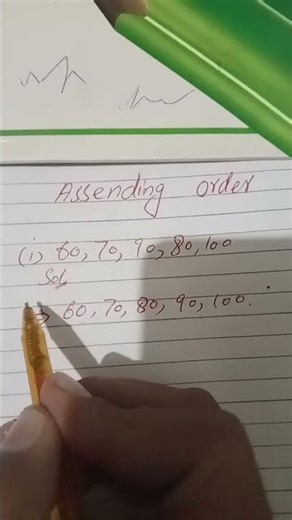 Assending order
(i) 60, 70, 90, 80, 100
Sol,
60, 70, 80, 90, 100.